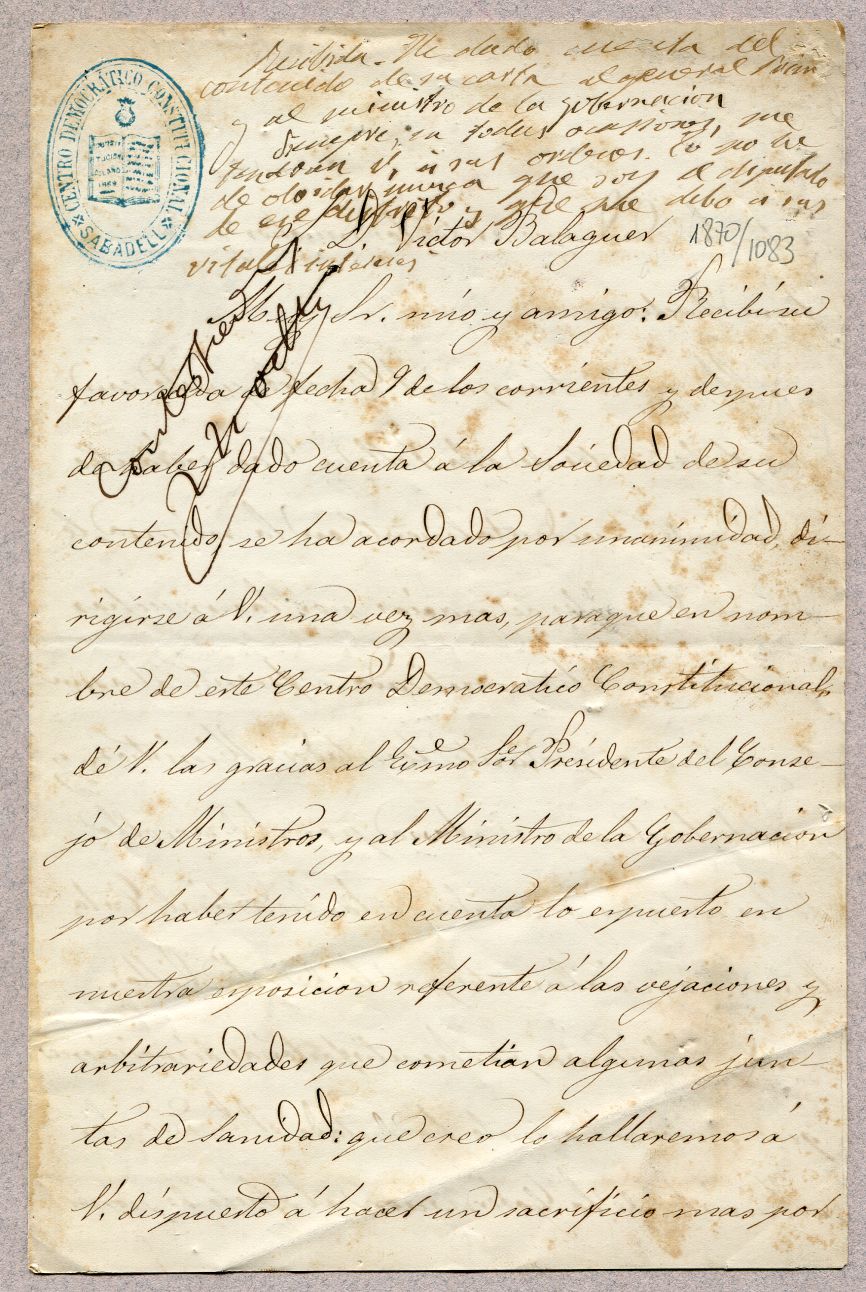 CENTRO DEMOCRÁTICO CONSTITUCIONAL
SABADELL
Recibida. He dado cuenta del
contenido de su carta al general Prim
y al ministro de la gobernacion
Siempre, en todas ocasiones, me
tendran V. a sus ordenes. Yo no he
de olvidar nunca que soy el diputado
de ese distrito y que me debo a sus
vitales intereses
D. Victor Balaguer
1870/1083
Contestada
Muy Sr. mio y amigo: Recibí su
favorecida de fecha 9 de los corrientes y despues
de haber dado cuenta á la Sociedad de su
contenido, se ha acordado por unanimidad, di-
rigirse á V. una vez mas, paraque en nom-
bre de este Centro Democratico Constitucional,
dé V. las gracias al Exmo Sor Presidente del Conse-
jo de Ministros, y al Ministro de la Gobernacion
por haber tenido en cuenta lo espuesto en
nuestra esposicion referente á las vejaciones y
arbitrariedades que cometian algunas jun-
tas de Sanidad: que creo lo hallaremos á
V. dispuesto á hacer un sacrificio mas por